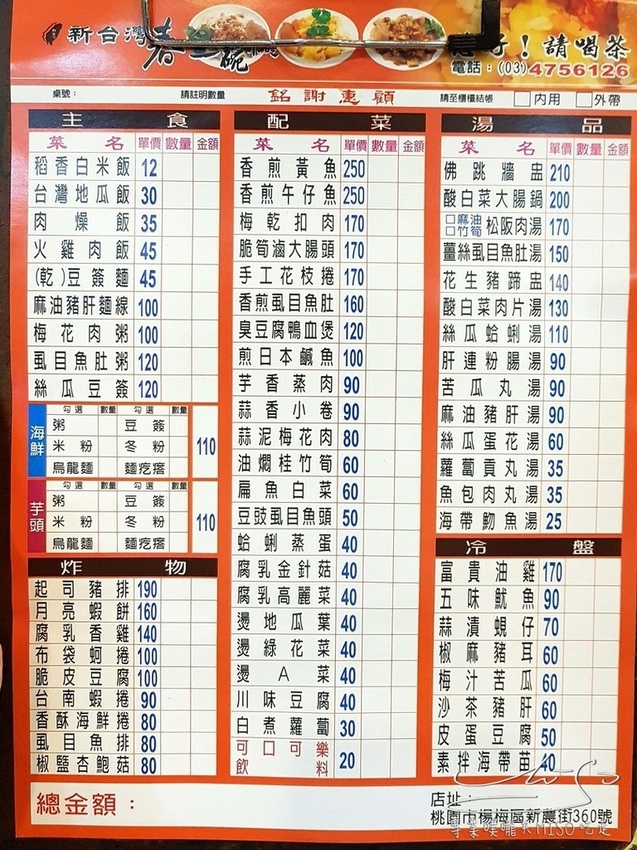 新台灣
請喝茶
電話：(03)4756126
桌號：　請註明數量　銘謝惠顧　請至櫃檯結帳 □內用 □外帶
主食
菜名 單價 數量 金額
稻香白米飯 12
台灣地瓜飯 30
肉燥飯 35
火雞肉飯 45
(乾)豆簽麵 45
麻油豬肝麵線 100
梅花肉粥 100
虱目魚肚粥 120
絲瓜豆簽 120
海鮮
勾選 數量 勾選 數量
粥 豆簽
米粉 冬粉
烏龍麵 麵疙瘩
110
芋頭
勾選 數量 勾選 數量
粥 豆簽
米粉 冬粉
烏龍麵 麵疙瘩
110
炸物
起司豬排 190
月亮蝦餅 160
腐乳香雞 140
布袋蚵捲 100
脆皮豆腐 100
台南蝦捲 90
香酥海鮮捲 80
虱目魚排 80
椒鹽杏鮑菇 80
總金額：
配菜
菜名 單價 數量 金額
香煎黃魚 250
香煎午仔魚 250
梅乾扣肉 170
脆筍滷大腸頭 170
手工花枝捲 170
香煎虱目魚肚 160
臭豆腐鴨血煲 120
煎日本鹹魚 100
芋香蒸肉 90
蒜香小卷 90
蒜泥梅花肉 80
油燜桂竹筍 60
扁魚白菜 60
豆豉虱目魚頭 50
蛤蜊蒸蛋 40
腐乳金針菇 40
腐乳高麗菜 40
燙地瓜葉 40
燙綠花菜 40
燙A菜 40
川味豆腐 40
白煮蘿蔔 30
可口可樂
飲料 20
湯品
菜名 單價 數量 金額
佛跳牆盅 210
酸白菜大腸鍋 200
□麻油
□竹筍 松阪肉湯 170
薑絲虱目魚肚湯 150
花生豬蹄盅 140
酸白菜肉片湯 130
絲瓜蛤蜊湯 110
肝連粉腸湯 90
苦瓜丸湯 90
麻油豬肝湯 90
絲瓜蛋花湯 60
蘿蔔貢丸湯 35
魚包肉丸湯 35
海帶魩魚湯 25
冷盤
富貴油雞 170
五味魷魚 90
蒜漬蜆仔 70
椒麻豬耳 60
梅汁苦瓜 60
沙茶豬肝 60
皮蛋豆腐 50
素拌海帶苗 40
店址：
桃園市楊梅區新農街360號